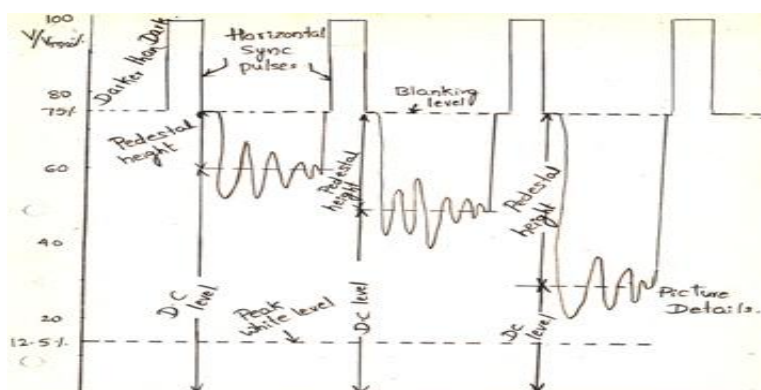 100
V/Vmax%
80
75%
60
40
20
12.5%
Darker than Dark
Horizontal
Sync
pulses
Blanking
level
Pedestal
height
Pedestal
height
Pedestal
height
D.C
level
DC level
DC
level
Peak
White level
Picture
Details.